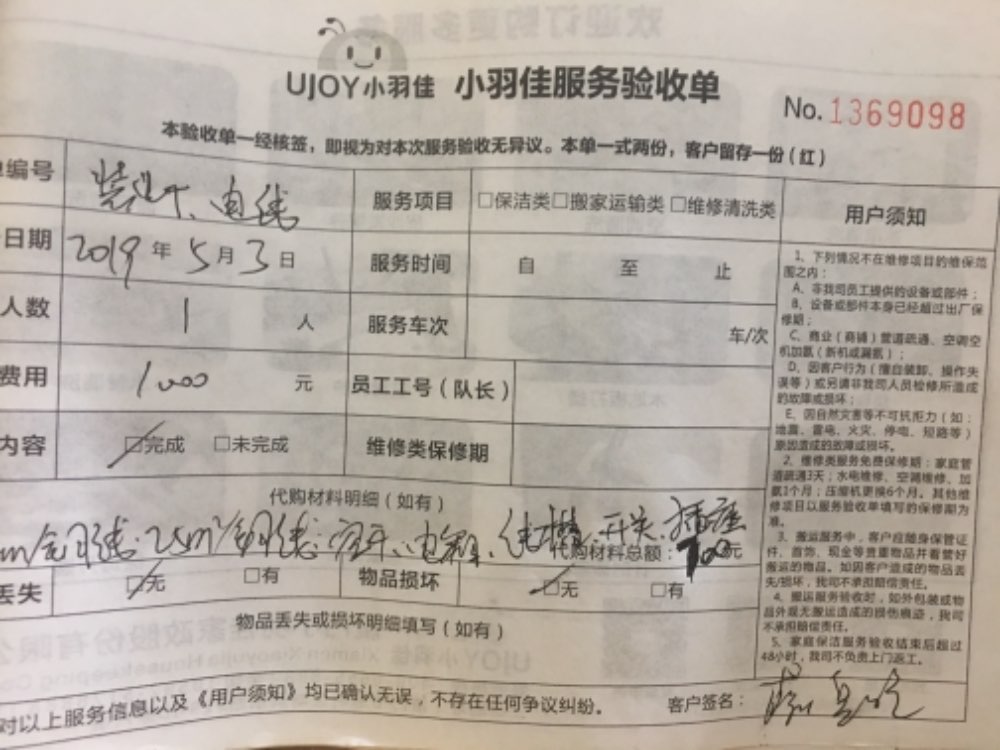 UJOY小羽佳 小羽佳服务验收单
No.1369098
本验收单一经核签，即视为对本次服务验收无异议。本单一式两份，客户留存一份（红）
编号 电线 服务项目 □保洁类□搬家运输类□维修清洗类
日期 2019年5月3日 服务时间 自 至 止
人数 1 人 服务车次 车/次
费用 1000 元 员工工号（队长）
内容 □完成 □未完成 维修类保修期
代购材料明细（如有）
25m² 开关、插座
代购材料总额： 元
丢失 □无 □有 物品损坏 □无 □有
物品丢失或损坏明细填写（如有）
对以上服务信息以及《用户须知》均已确认无误，不存在任何争议纠纷。 客户签名：
用户须知
1、下列情况不在维修项目的维保范
围之内：
A、非我司员工提供的设备或部件；
B、设备或部件本身已经超过出厂保
修期；
C、商业（商铺）管道疏通、空调空
机加氟（新机或漏氟）；
D、因客户行为（擅自装卸、操作失
误等）或另请非我司人员检修所造成
的故障或损坏；
E、因自然灾害等不可抗拒力（如：
地震、雷电、火灾、停电、短路等）
原因造成的故障或损坏。
2、维修类服务免费保修期：家庭管
道疏通3天；水电维修、空调维修、加
氟1个月；压缩机更换6个月。其他维
修项目以服务验收单填写的保修期为
准。
3、搬运服务中，客户应随身保管证
件、首饰、现金等贵重物品并看管好
搬运的物品。如因客户造成的物品丢
失/损坏，我司不承担赔偿责任。
4、搬运服务验收时，如外包装或物
品外观无搬运造成的损伤痕迹，我司
不承担赔偿责任。
5、家庭保洁服务验收结束后超过
48小时，我司不负责上门返工。